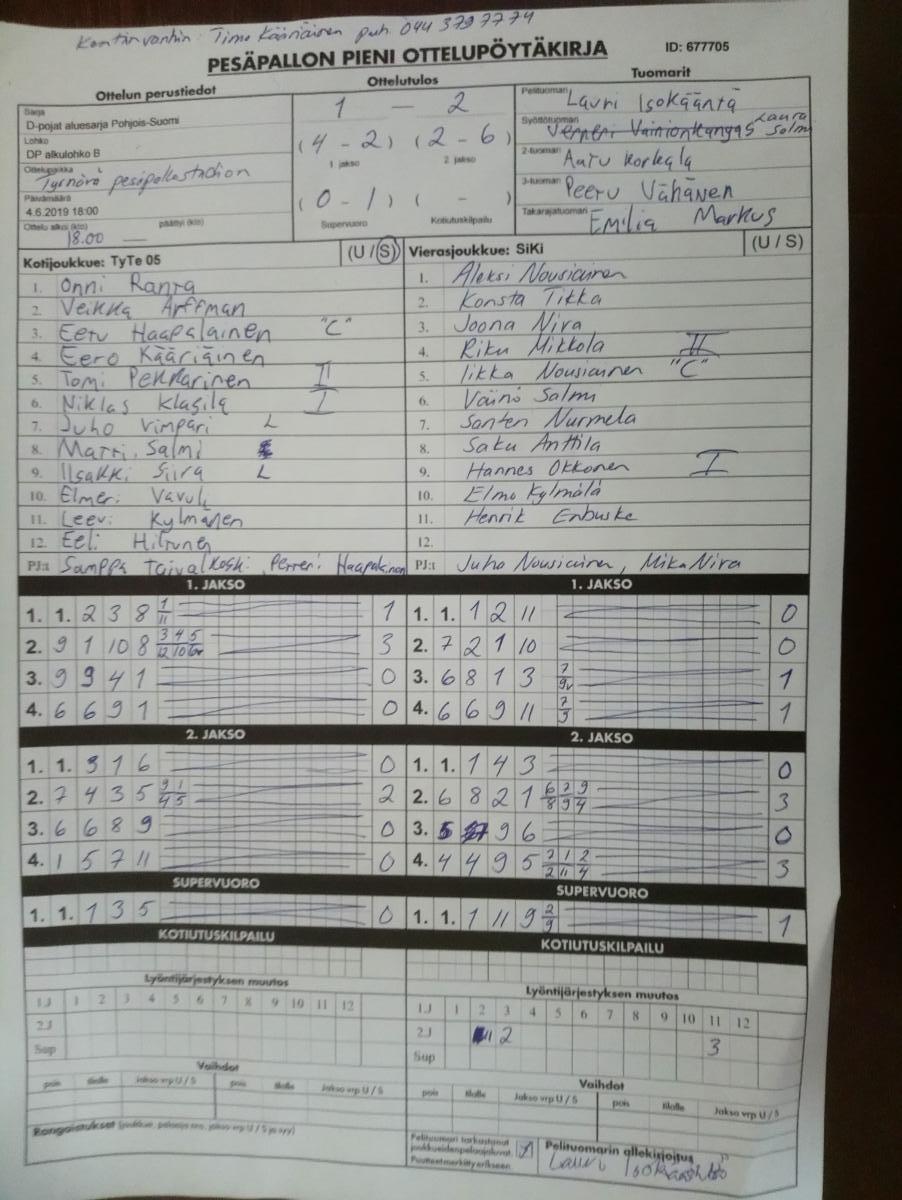 Kentänvanhin: Timo Kääriäinen puh. 044 379 7774
PESÄPALLON PIENI OTTELUPÖYTÄKIRJA
ID: 677705
Ottelun perustiedot
Sarja
D-pojat aluesarja Pohjois-Suomi
Lohko
DP alkulohko B
Ottelupaikka
Tyrnävä pesäpallostadion
Päivämäärä
4.6.2019 18:00
Ottelu alkoi (klo) päättyi (klo)
18.00 —
Ottelutulos
1 - 2
(4 - 2) (2 - 6)
1 jakso 2 jakso
(0 - 1) ( - )
Supervuoro Kotiutuskilpailu
Tuomarit
Pelituomari Lauri Isokääntä
Syöttötuomari Verneri Vainionkangas Laura Salmi
2-tuomari Aatu Korkala
3-tuomari Peeru Vähänen
Takarajatuomari Emilia Markus
Kotijoukkue: TyTe 05 (U / S)
1. Onni Ranta
2. Veikka Arffman
3. Eetu Haapalainen "C"
4. Eero Kääriäinen
5. Tomi Pekkarinen II
6. Niklas Klasila I
7. Juho Vimpari L
8. Matti Salmi
9. Iisakki Siira L
10. Elmeri Vavuli
11. Leevi Kylmänen
12. Eeli Hiltunen
PJ:t Samppa Taivalkoski, Petteri Haapalainen
Vierasjoukkue: SiKi (U / S)
1. Aleksi Nousiainen
2. Konsta Tikka
3. Joona Niva
4. Riku Mikkola II
5. Iikka Nousiainen "C"
6. Väinö Salmi
7. Santeri Nurmela
8. Saku Anttila
9. Hannes Okkonen I
10. Elmo Kylmälä
11. Henrik Enbuske
12.
PJ:t Juho Nousiainen, Mika Niva
1. JAKSO
1. 1. 2 3 8 1/11 1
2. 9 1 10 8 3/12 4/10 5/6v 3
3. 9 9 4 1 0
4. 6 6 9 1 0
1. JAKSO
1. 1. 1 2 11 0
2. 7 2 1 10 0
3. 6 8 1 3 7/9v 1
4. 6 6 9 11 7/9 1
2. JAKSO
1. 1. 3 1 6 0
2. 7 4 3 5 3/4 1/5 2
3. 6 6 8 9 0
4. 1 5 7 11 0
2. JAKSO
1. 1. 1 4 3 0
2. 6 8 2 1 6/8 7/9 9/4 3
3. 5 9 6 0
4. 4 4 9 5 7/2 1/11 2/4 3
SUPERVUORO
1. 1. 1 3 5 0
SUPERVUORO
1. 1. 1 11 9 2/9 1
KOTIUTUSKILPAILU
Lyöntijärjestyksen muutos
1J 1 2 3 4 5 6 7 8 9 10 11 12
2J
Sup
Vaihdot
pois tilalle Jakso vrp U / S pois tilalle Jakso vrp U / S
Rangaistukset (joukkue, pelaaja nro, jakso vrp U / S ja syy)
KOTIUTUSKILPAILU
Lyöntijärjestyksen muutos
1J 1 2 3 4 5 6 7 8 9 10 11 12
2J 11 2 3
Sup
Vaihdot
pois tilalle Jakso vrp U / S pois tilalle Jakso vrp U / S
Pelituomari tarkastanut
joukkueiden pelaajaluvat.
Puutteet merkitty erikseen.
Pelituomarin allekirjoitus
Lauri Isokääntä